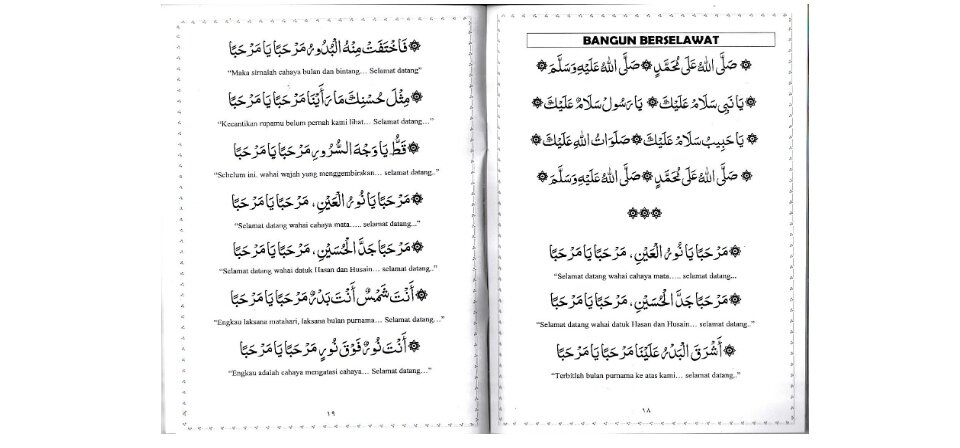 BANGUN BERSELAWAT
۞ صَلَّى اللهُ عَلَى مُحَمَّدٍ ۞ صَلَّى اللهُ عَلَيْهِ وَسَلَّمَ ۞
۞ يَا نَبِي سَلَامٌ عَلَيْكَ ۞ يَا رَسُولْ سَلَامٌ عَلَيْكَ ۞
۞ يَا حَبِيبْ سَلَامٌ عَلَيْكَ ۞ صَلَوَاتُ اللهِ عَلَيْكَ ۞
۞ صَلَّى اللهُ عَلَى مُحَمَّدٍ ۞ صَلَّى اللهُ عَلَيْهِ وَسَلَّمَ ۞
۞۞۞
۞ مَرْحَبًا يَا نُورُ الْعَيْنِ، مَرْحَبًا يَا مَرْحَبًا
“Selamat datang wahai cahaya mata..... selamat datang...
۞ مَرْحَبًا جَدَّ الْحُسَيْنِ، مَرْحَبًا يَا مَرْحَبًا
“Selamat datang wahai datuk Hasan dan Husain… selamat datang..”
۞ أَشْرَقَ الْبَدْرُ عَلَيْنَا مَرْحَبًا يَا مَرْحَبًا
“Terbitlah bulan purnama ke atas kami… selamat datang..”
١٨
۞ فَاخْتَفَتْ مِنْهُ الْبُدُورُ مَرْحَبًا يَا مَرْحَبًا
“Maka sirnalah cahaya bulan dan bintang… Selamat datang”
۞ مِثْلَ حُسْنِكَ مَا رَأَيْنَا مَرْحَبًا يَا مَرْحَبًا
“Kecantikan rupamu belum pernah kami lihat… Selamat datang…”
۞ قَطُّ يَا وَجْهَ السُّرُورِ مَرْحَبًا يَا مَرْحَبًا
“Sebelum ini. wahai wajah yang menggembirakan… selamat datang..”
۞ مَرْحَبًا يَا نُورُ الْعَيْنِ، مَرْحَبًا يَا مَرْحَبًا
“Selamat datang wahai cahaya mata..... selamat datang..”
۞ مَرْحَبًا جَدَّ الْحُسَيْنِ، مَرْحَبًا يَا مَرْحَبًا
“Selamat datang wahai datuk Hasan dan Husain… selamat datang..”
۞ أَنْتَ شَمْسٌ أَنْتَ بَدْرٌ مَرْحَبًا يَا مَرْحَبًا
“Engkau laksana matahari, laksana bulan purnama… Selamat datang…”
۞ أَنْتَ نُورٌ فَوْقَ نُورٍ مَرْحَبًا يَا مَرْحَبًا
“Engkau adalah cahaya mengatasi cahaya… Selamat datang…”
١٩